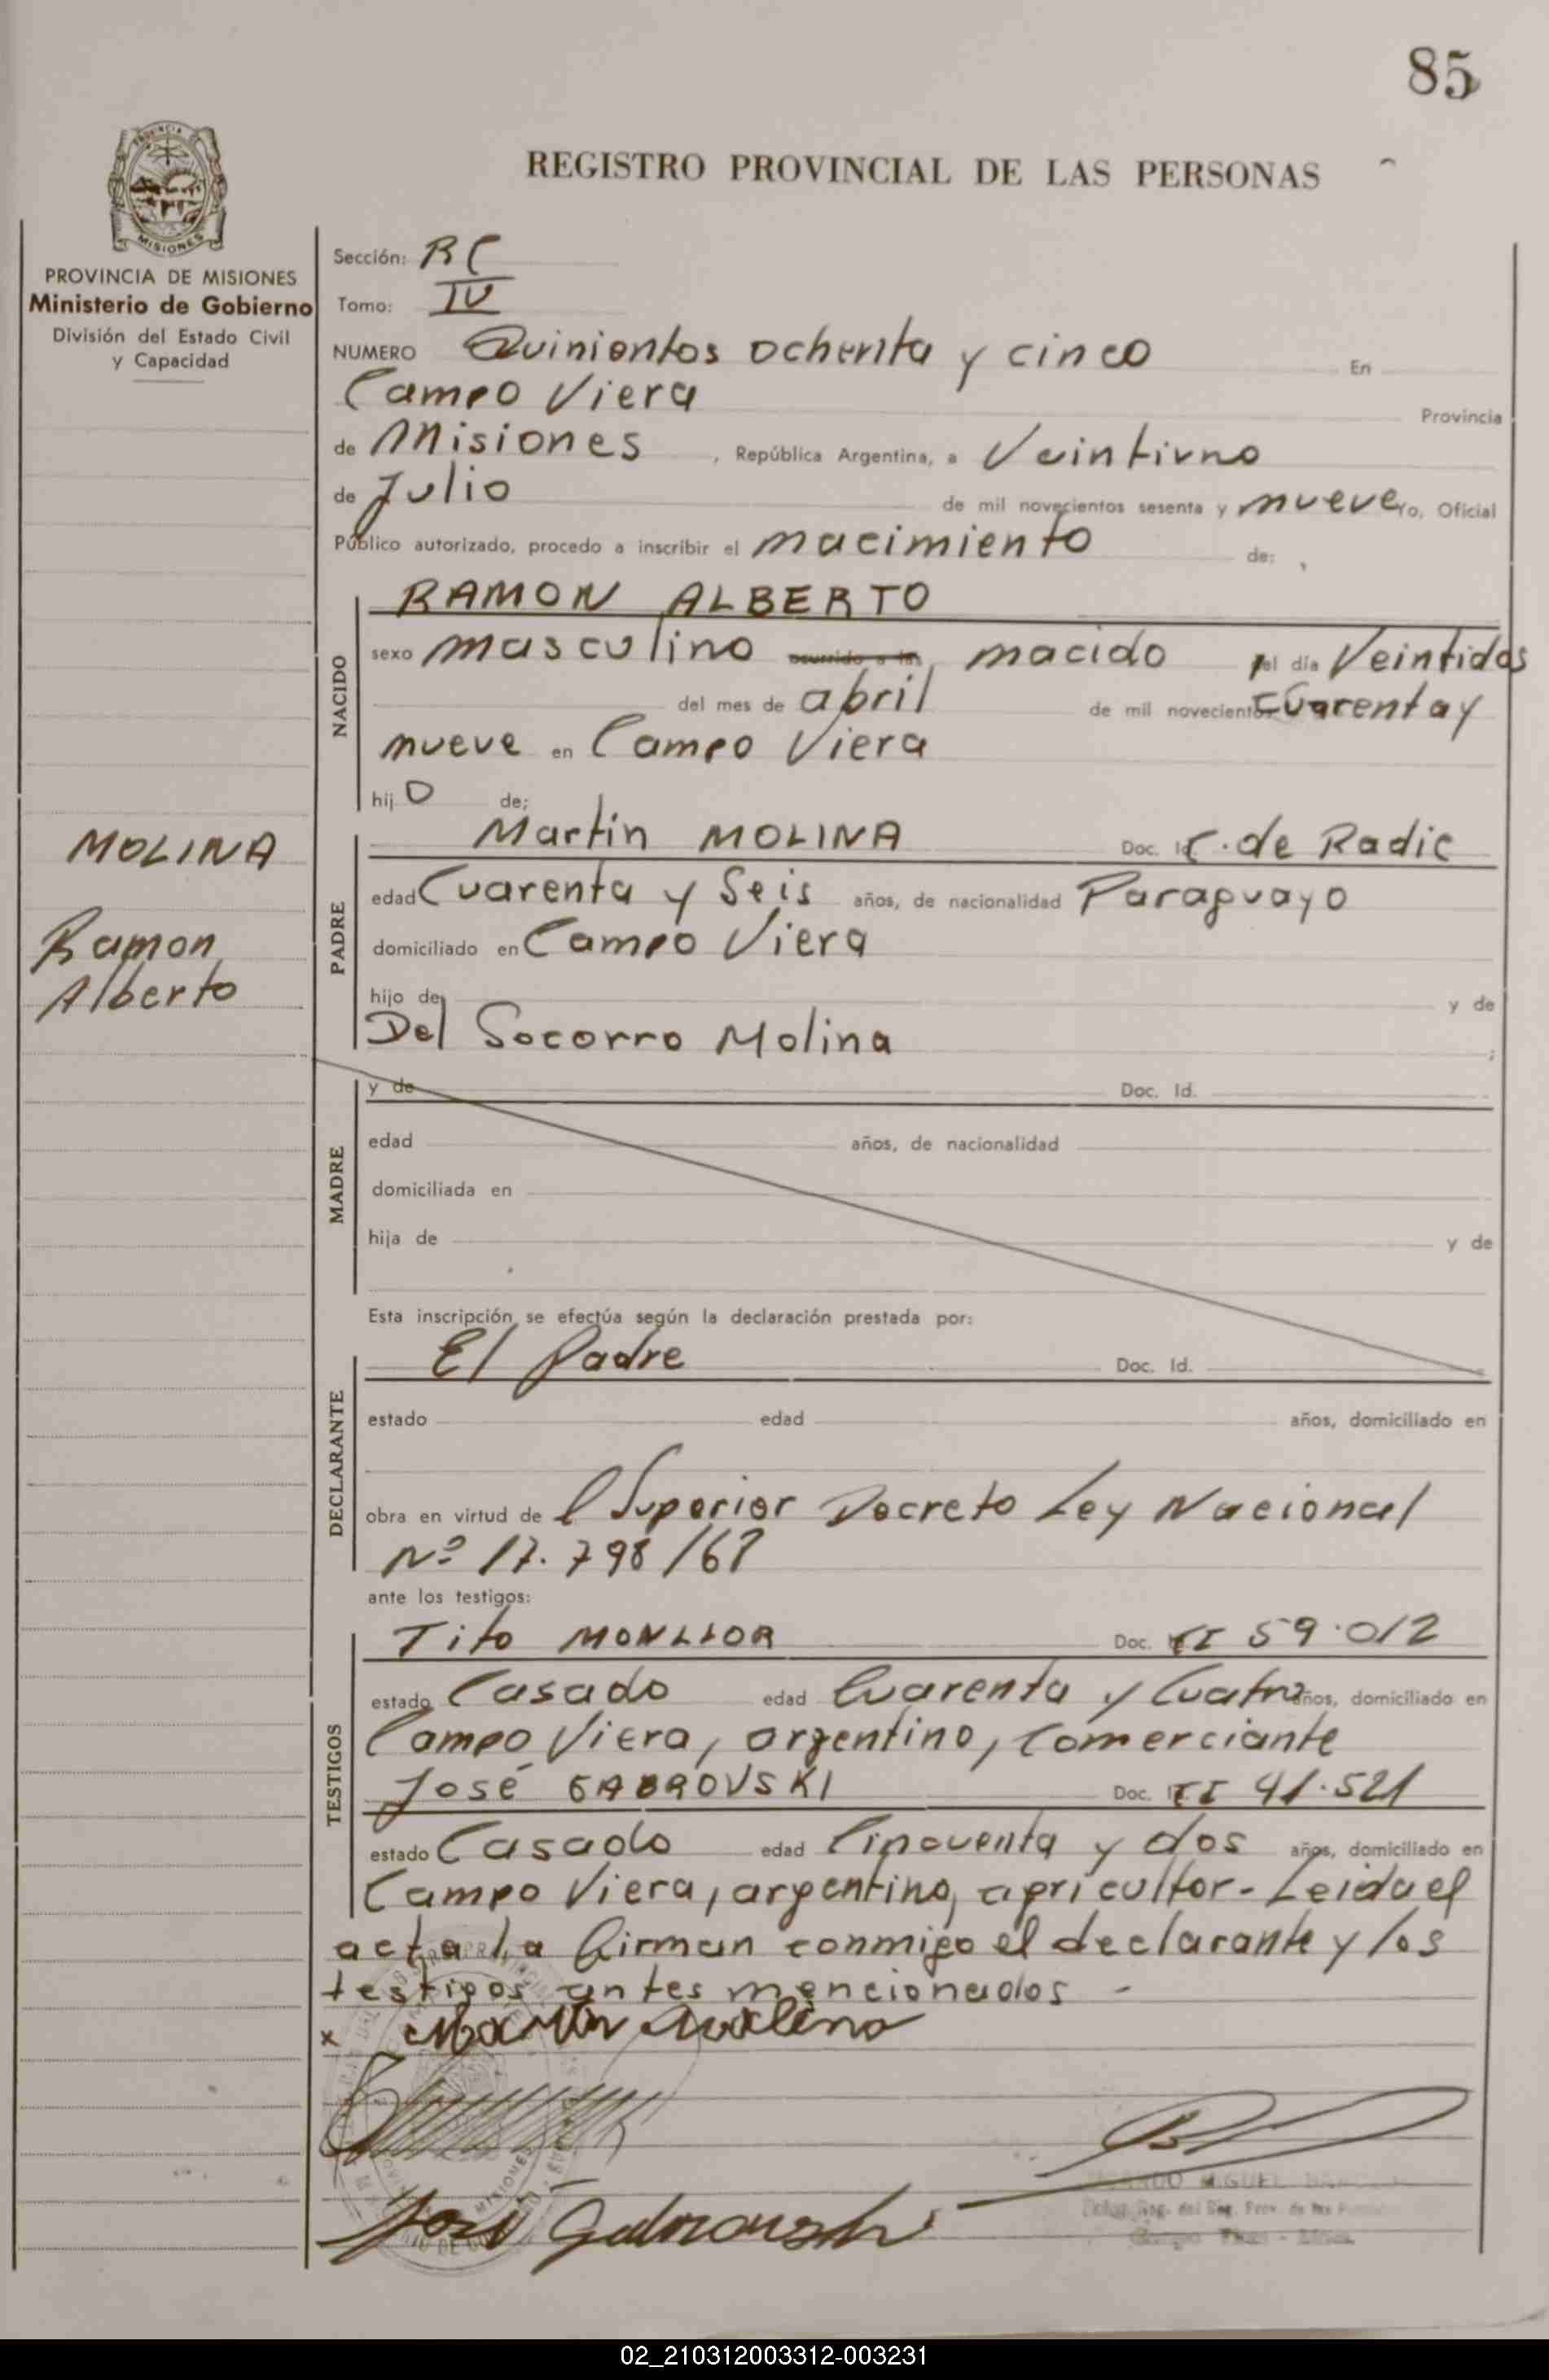 85
REGISTRO PROVINCIAL DE LAS PERSONAS
PROVINCIA DE MISIONES
Ministerio de Gobierno
División del Estado Civil
y Capacidad
Sección: RC
Tomo: IV
NUMERO Quinientos ochenta y cinco En
Campo Viera Provincia
de Misiones , República Argentina, a Veintiuno
de Julio de mil novecientos sesenta y nueve Yo, Oficial
Público autorizado, procedo a inscribir el nacimiento de:
NACIDO
RAMON ALBERTO
sexo masculino ocurrido a las nacido el día Veintidos
del mes de abril de mil novecientos Cuarenta y
nueve en Campo Viera
hijo de;
MOLINA
Ramon
Alberto
PADRE
Martin MOLINA Doc. Id. C. de Radic
edad Cuarenta y Seis años, de nacionalidad Paraguayo
domiciliado en Campo Viera
hijo de y de
Del Socorro Molina ;
MADRE
y de Doc. Id.
edad años, de nacionalidad
domiciliada en
hija de y de
Esta inscripción se efectúa según la declaración prestada por:
DECLARANTE
El padre Doc. Id.
estado edad años, domiciliado en
obra en virtud de l Superior Decreto Ley Nacional
Nº 17.798/68
ante los testigos:
TESTIGOS
Tito MONLLOR Doc. CI 59.012
estado Casado edad Cuarenta y Cuatro años, domiciliado en
Campo Viera, argentino, comerciante
José GABROVSKI Doc. CI 41.521
estado Casado edad Cincuenta y dos años, domiciliado en
Campo Viera, argentino, agricultor - Leida el
acta la firman conmigo el declarante y los
testigos antes mencionados -
x Martin Molina
José Gabrovski
MIGUEL
Campo Viera
02_210312003312-003231